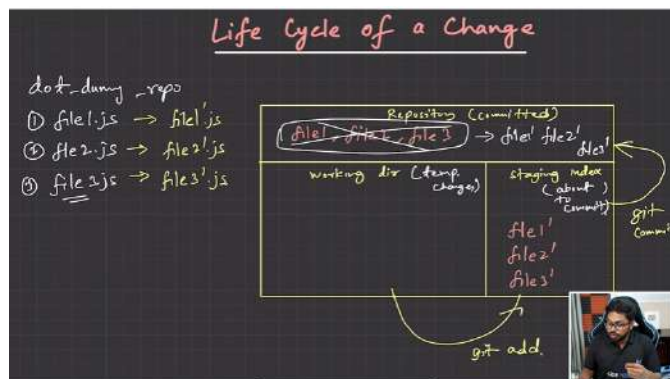 Life Cycle of a Change
dot_dummy_repo
① file1.js → file1'.js
② file2.js → file2'.js
③ file3.js → file3'.js
Repository (committed)
file1, file2, file3 → file1' file2'
file3'
working dir (temp.
changes)
staging index
(about
to
commit)
git
commit
file1'
file2'
file3'
git add.